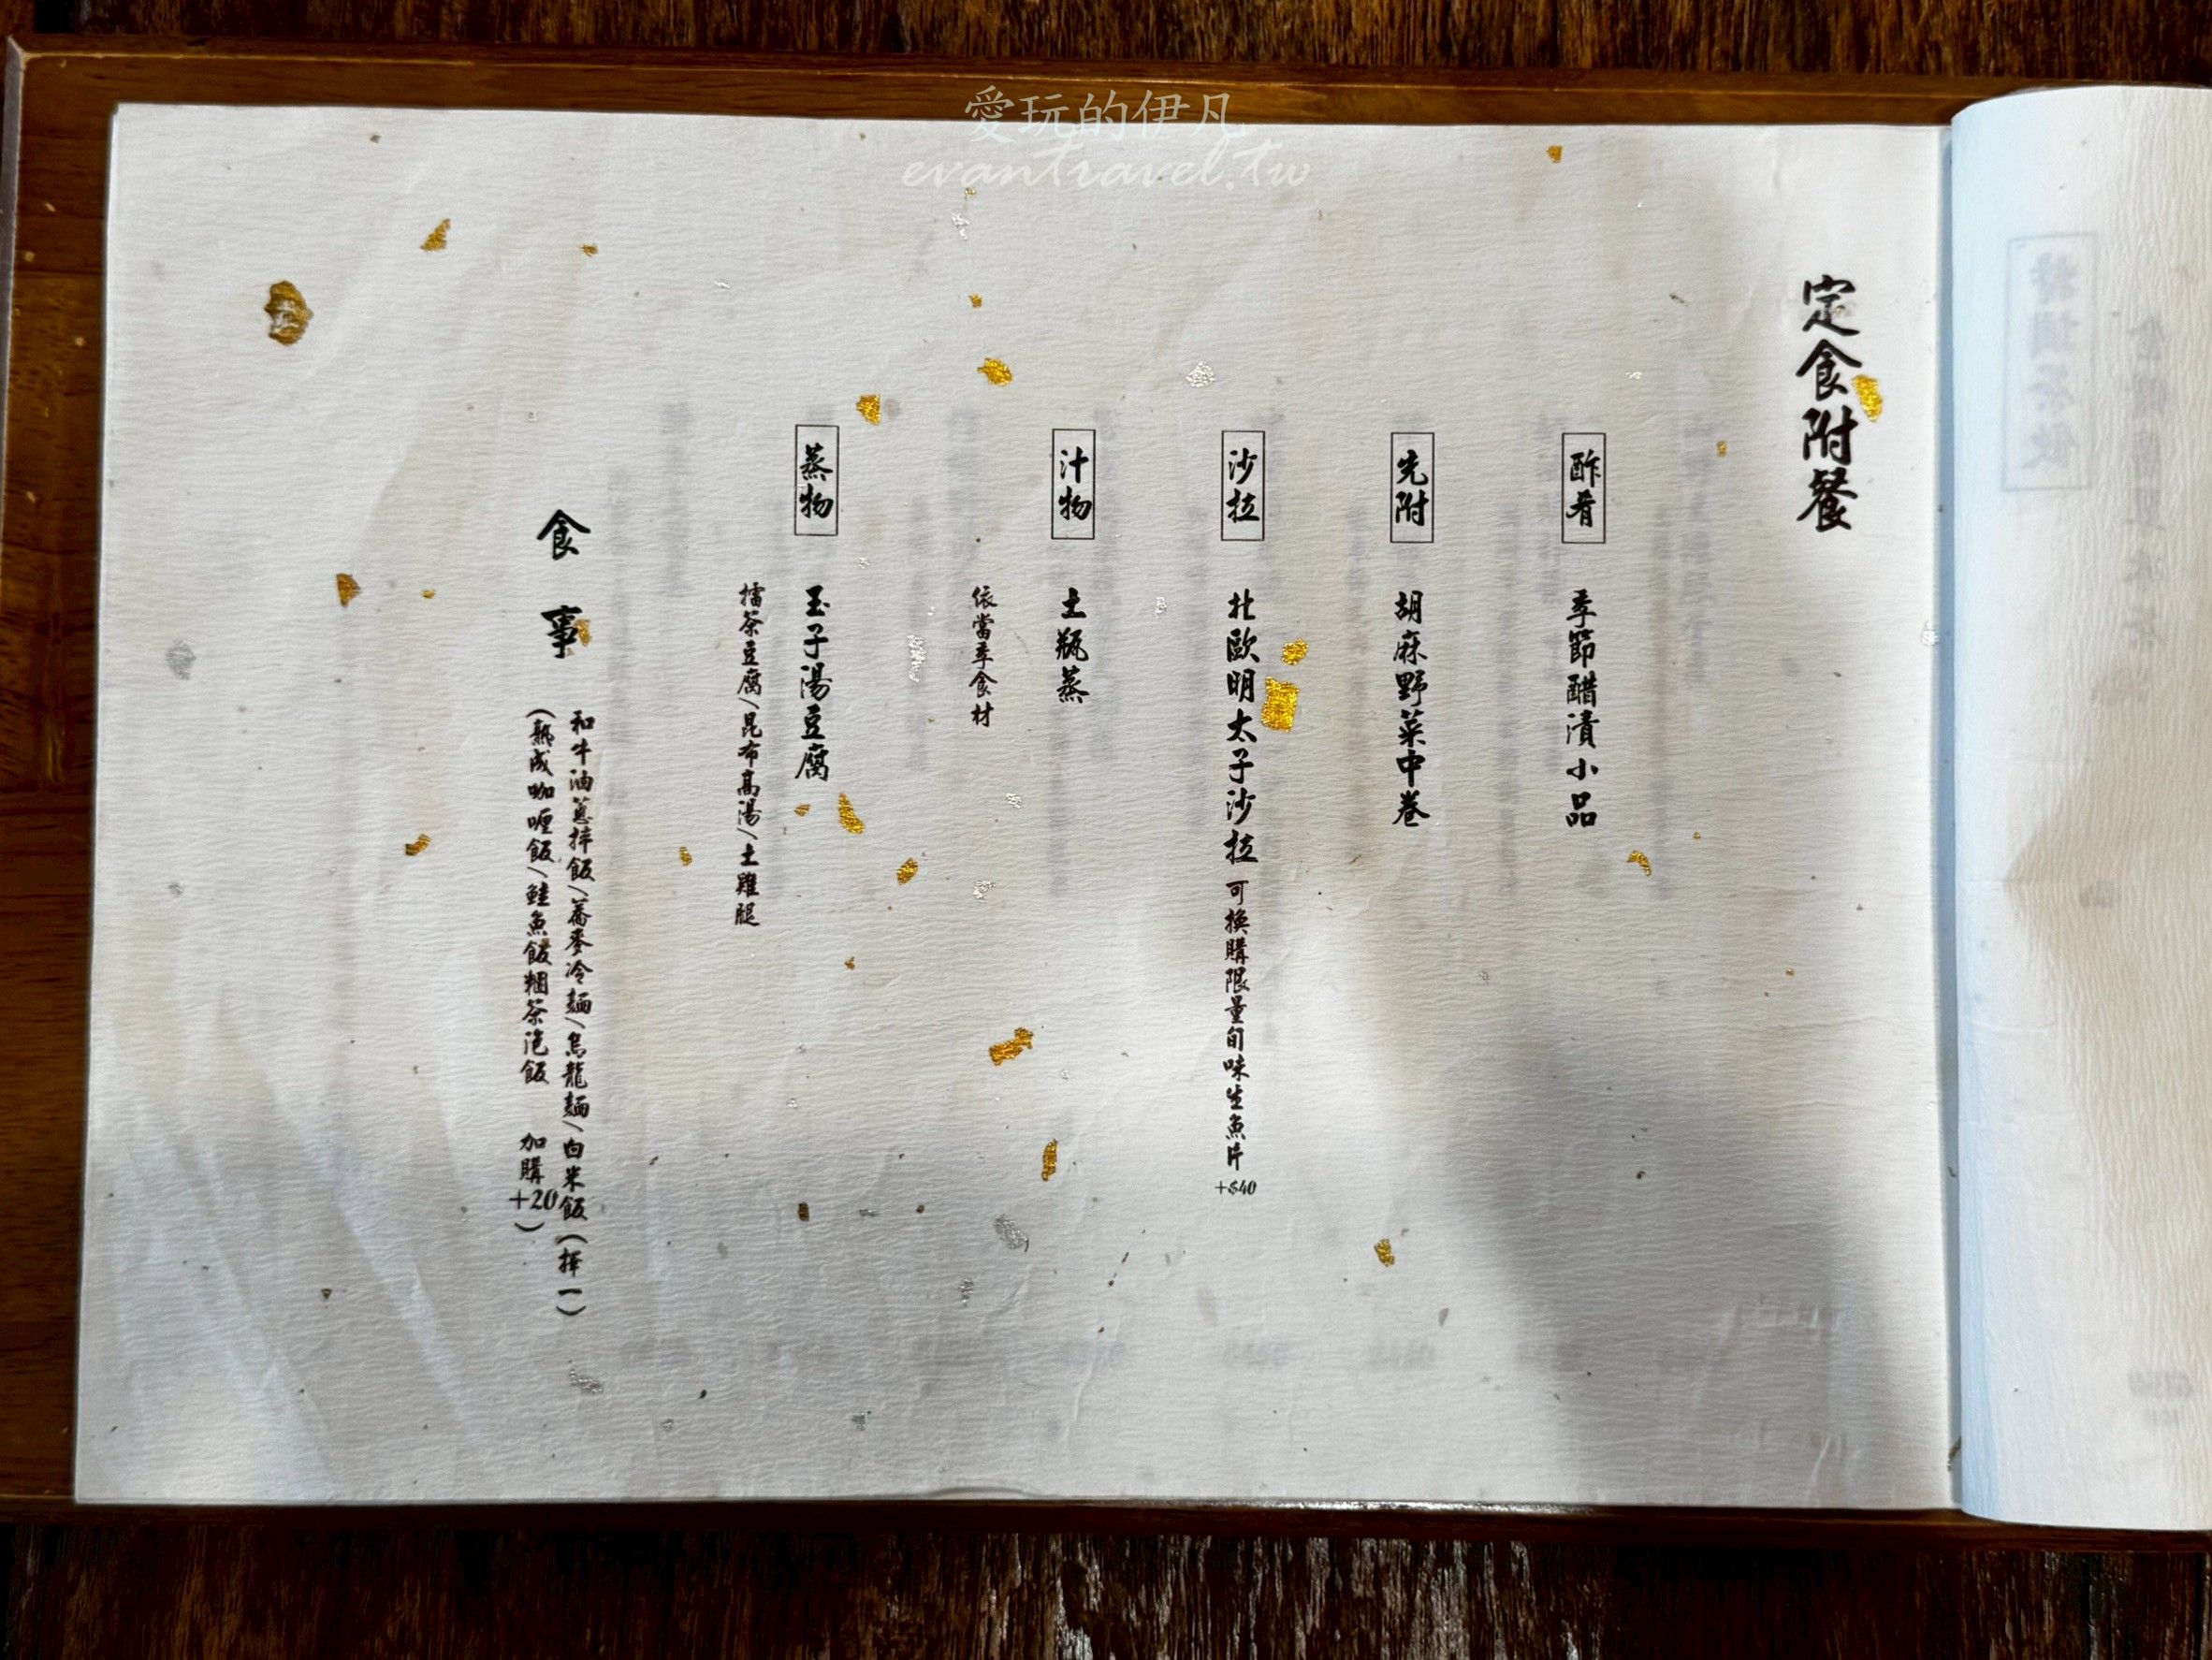 愛玩的伊凡
evantravel.tw
定食附餐
酢肴 季節醋漬小品
先附 胡麻野菜中卷
沙拉 北歐明太子沙拉 可換購限量旬味生魚片 +$40
汁物 土瓶蒸
依當季食材
蒸物 玉子湯豆腐
擂茶豆腐/昆布高湯/土雞腿
食事 和牛油蔥拌飯/蕎麥冷麵/烏龍麵/白米飯(擇一)
(熟成咖哩飯/鮭魚飯糰茶泡飯 加購+20)